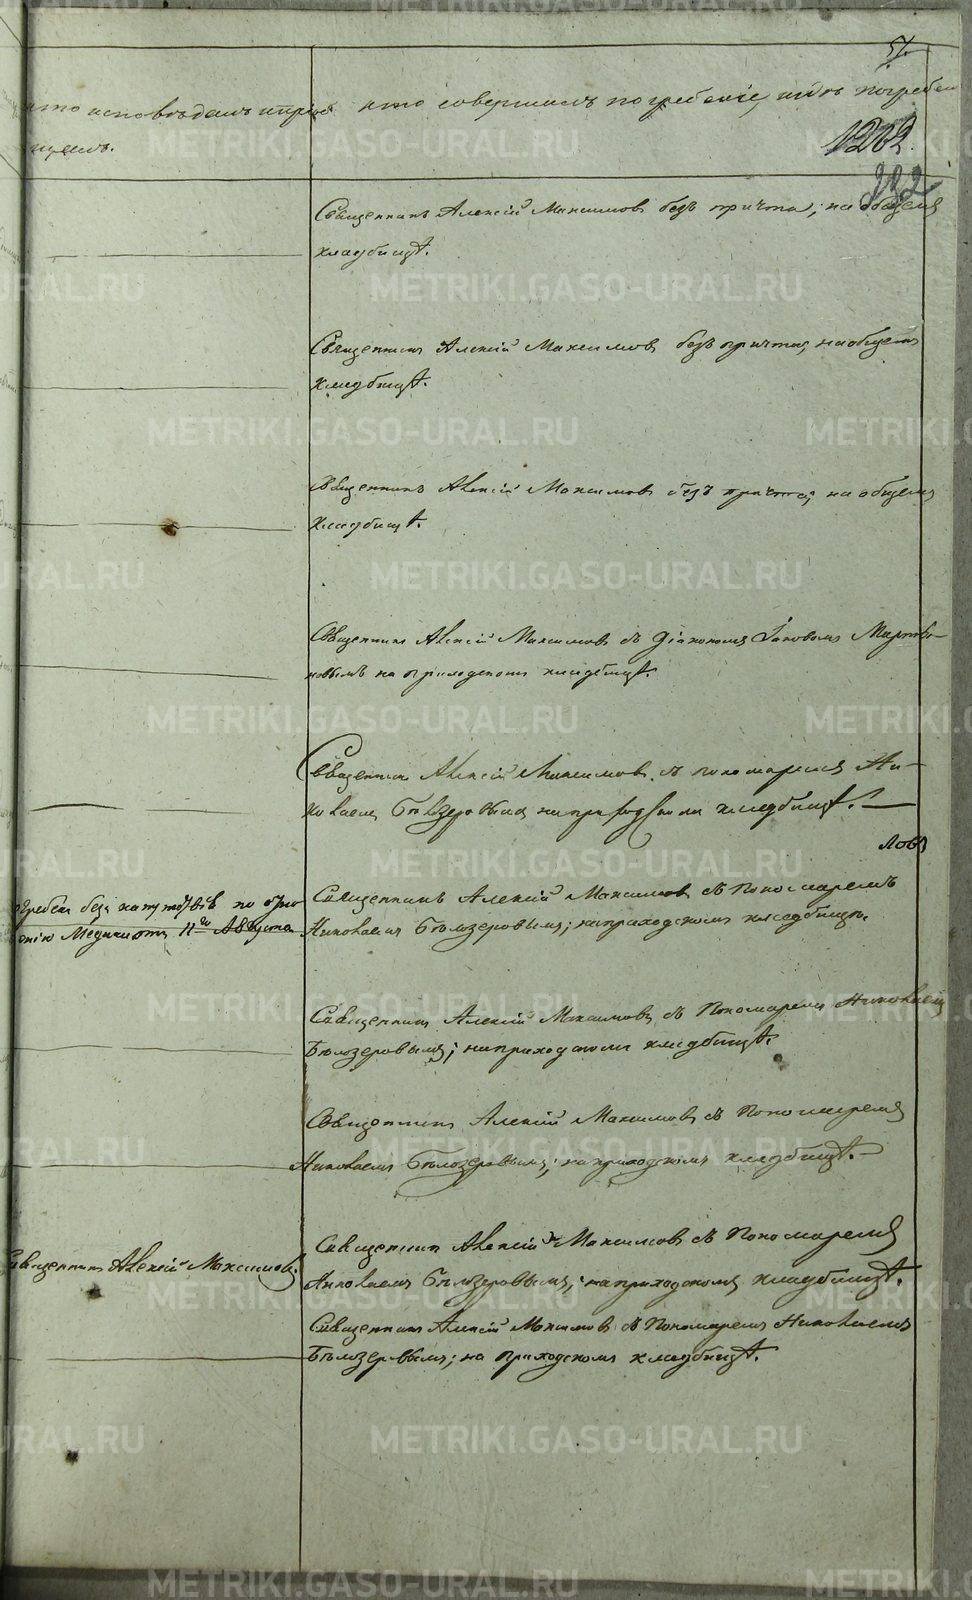 57.
кто исповѣдалъ и пріоб
щалъ.
кто совершалъ погребеніе, и гдѣ погребен
1202.
232
Священникъ Алексій Максимовъ безъ причта; на общемъ
кладбищѣ.
Священникъ Алексій Максимовъ безъ причта, на общемъ
кладбищѣ.
Священникъ Алексій Максимовъ безъ причта; на общемъ
кладбищѣ.
Священникъ Алексій Максимовъ съ Діакономъ Іаковомъ Марты-
новымъ на приходскомъ кладбищѣ.
Священникъ Алексій Максимовъ съ пономаремъ Ни-
колаемъ Бѣлозеровымъ на приходскомъ кладбищѣ.
погребен безъ напутствія по
Медика отъ 11го Августа
Священникъ Алексій Максимовъ съ Пономаремъ
Николаемъ Бѣлозеровымъ; на приходскомъ кладбищѣ.
Священникъ Алексій Максимовъ съ Пономаремъ Николаемъ
Бѣлозеровымъ; на приходскомъ кладбищѣ.
Священникъ Алексій Максимовъ съ Пономаремъ
Николаемъ Бѣлозеровымъ; на приходскомъ кладбищѣ.
Священникъ Алексій Максимовъ.
Священникъ Алексій Максимовъ съ Пономаремъ
Николаемъ Бѣлозеровымъ; на приходскомъ кладбищѣ.
Священникъ Алексій Максимовъ съ Пономаремъ Николаемъ
Бѣлозеровымъ; на приходскомъ кладбищѣ.
METRIKI.GASO-URAL.RU